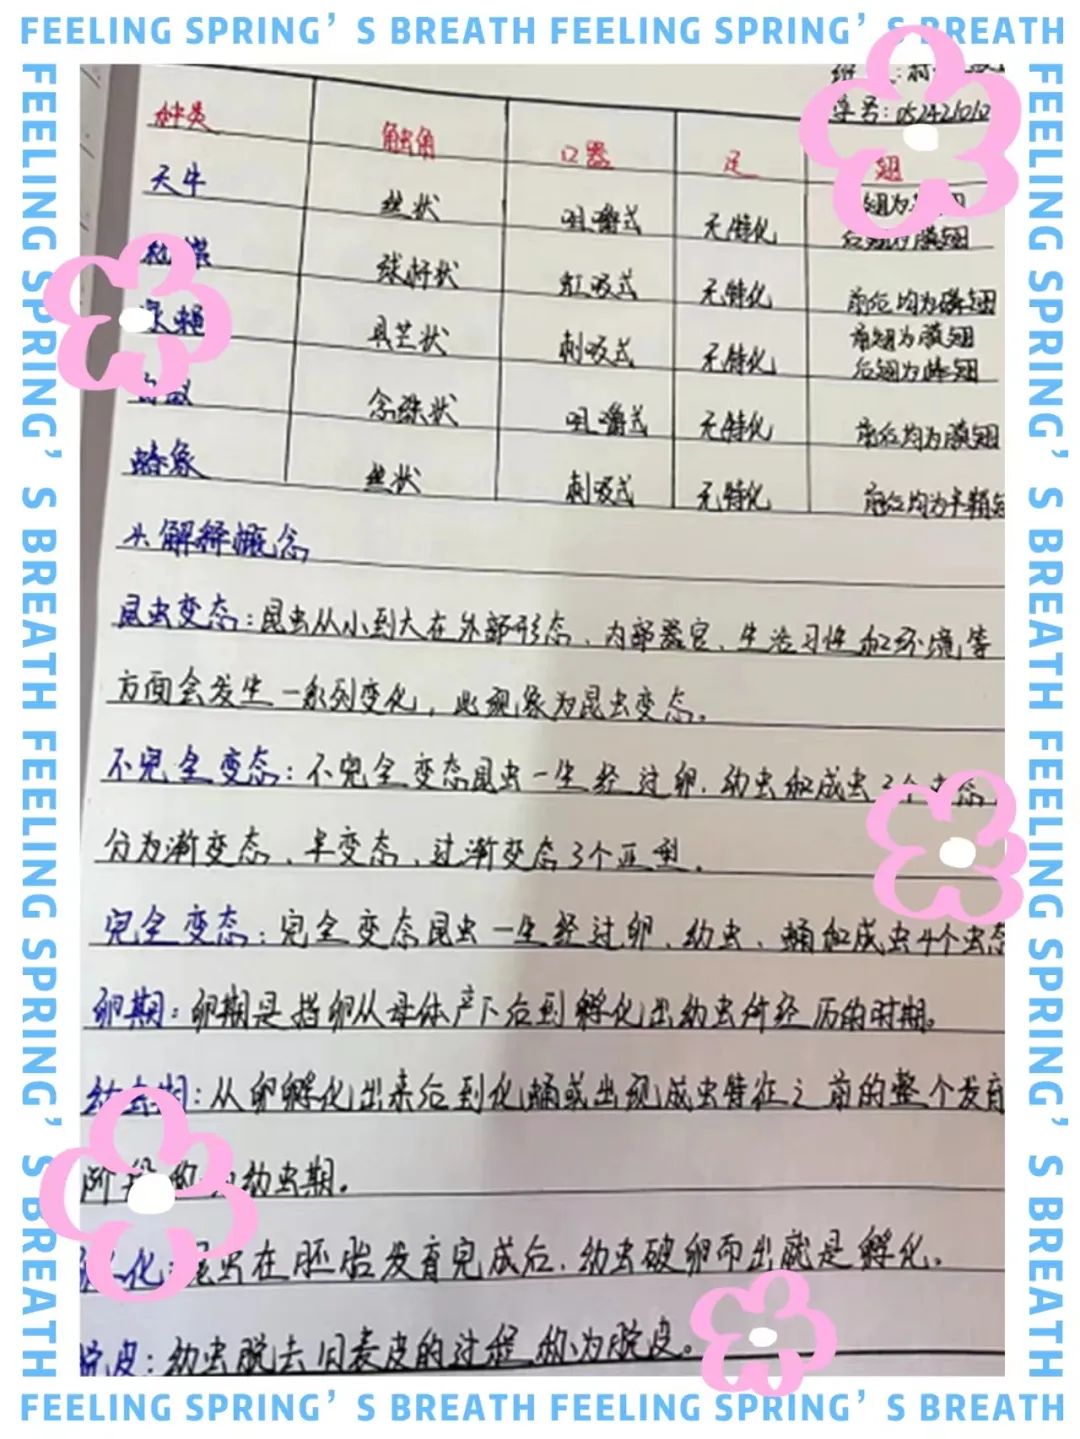 FEELING SPRING’S BREATH FEELING SPRING’S BREATH
学号:052421010
种类 触角 口器 足 翅
天牛 丝状 咀嚼式 无特化 翅为
后翅为膜翅
球杆状 虹吸式 无特化 前后均为磷翅
蝇 具芒状 刺吸式 无特化 前翅为膜翅
后翅为棒翅
念珠状 咀嚼式 无特化 前后均为膜翅
蝽象 丝状 刺吸式 无特化 前后均为半鞘翅
解释概念
昆虫变态:昆虫从小到大在外部形态、内部器官、生活习性和环境等
方面会发生一系列变化,此现象为昆虫变态。
不完全变态:不完全变态昆虫一生经过卵、幼虫和成虫3个态
分为渐变态、半变态、过渐变态3个亚型。
完全变态:完全变态昆虫一生经过卵、幼虫、蛹和成虫4个虫态
卵期:卵期是指卵从母体产下后到孵化出幼虫所经历的时期。
幼虫期:从卵孵化出来后到化蛹或出现成虫特征之前的整个发育
阶段 幼虫期。
化 昆虫在胚胎发育完成后,幼虫破卵而出就是孵化。
脱皮:幼虫脱去旧表皮的过程称为脱皮。
FEELING SPRING’S BREATH FEELING SPRING’S BREATH
FEELING SPRING’S BREATH FEELING SPRING’S BREATH
FEELING SPRING’S BREATH FEELING SPRING’S BREATH